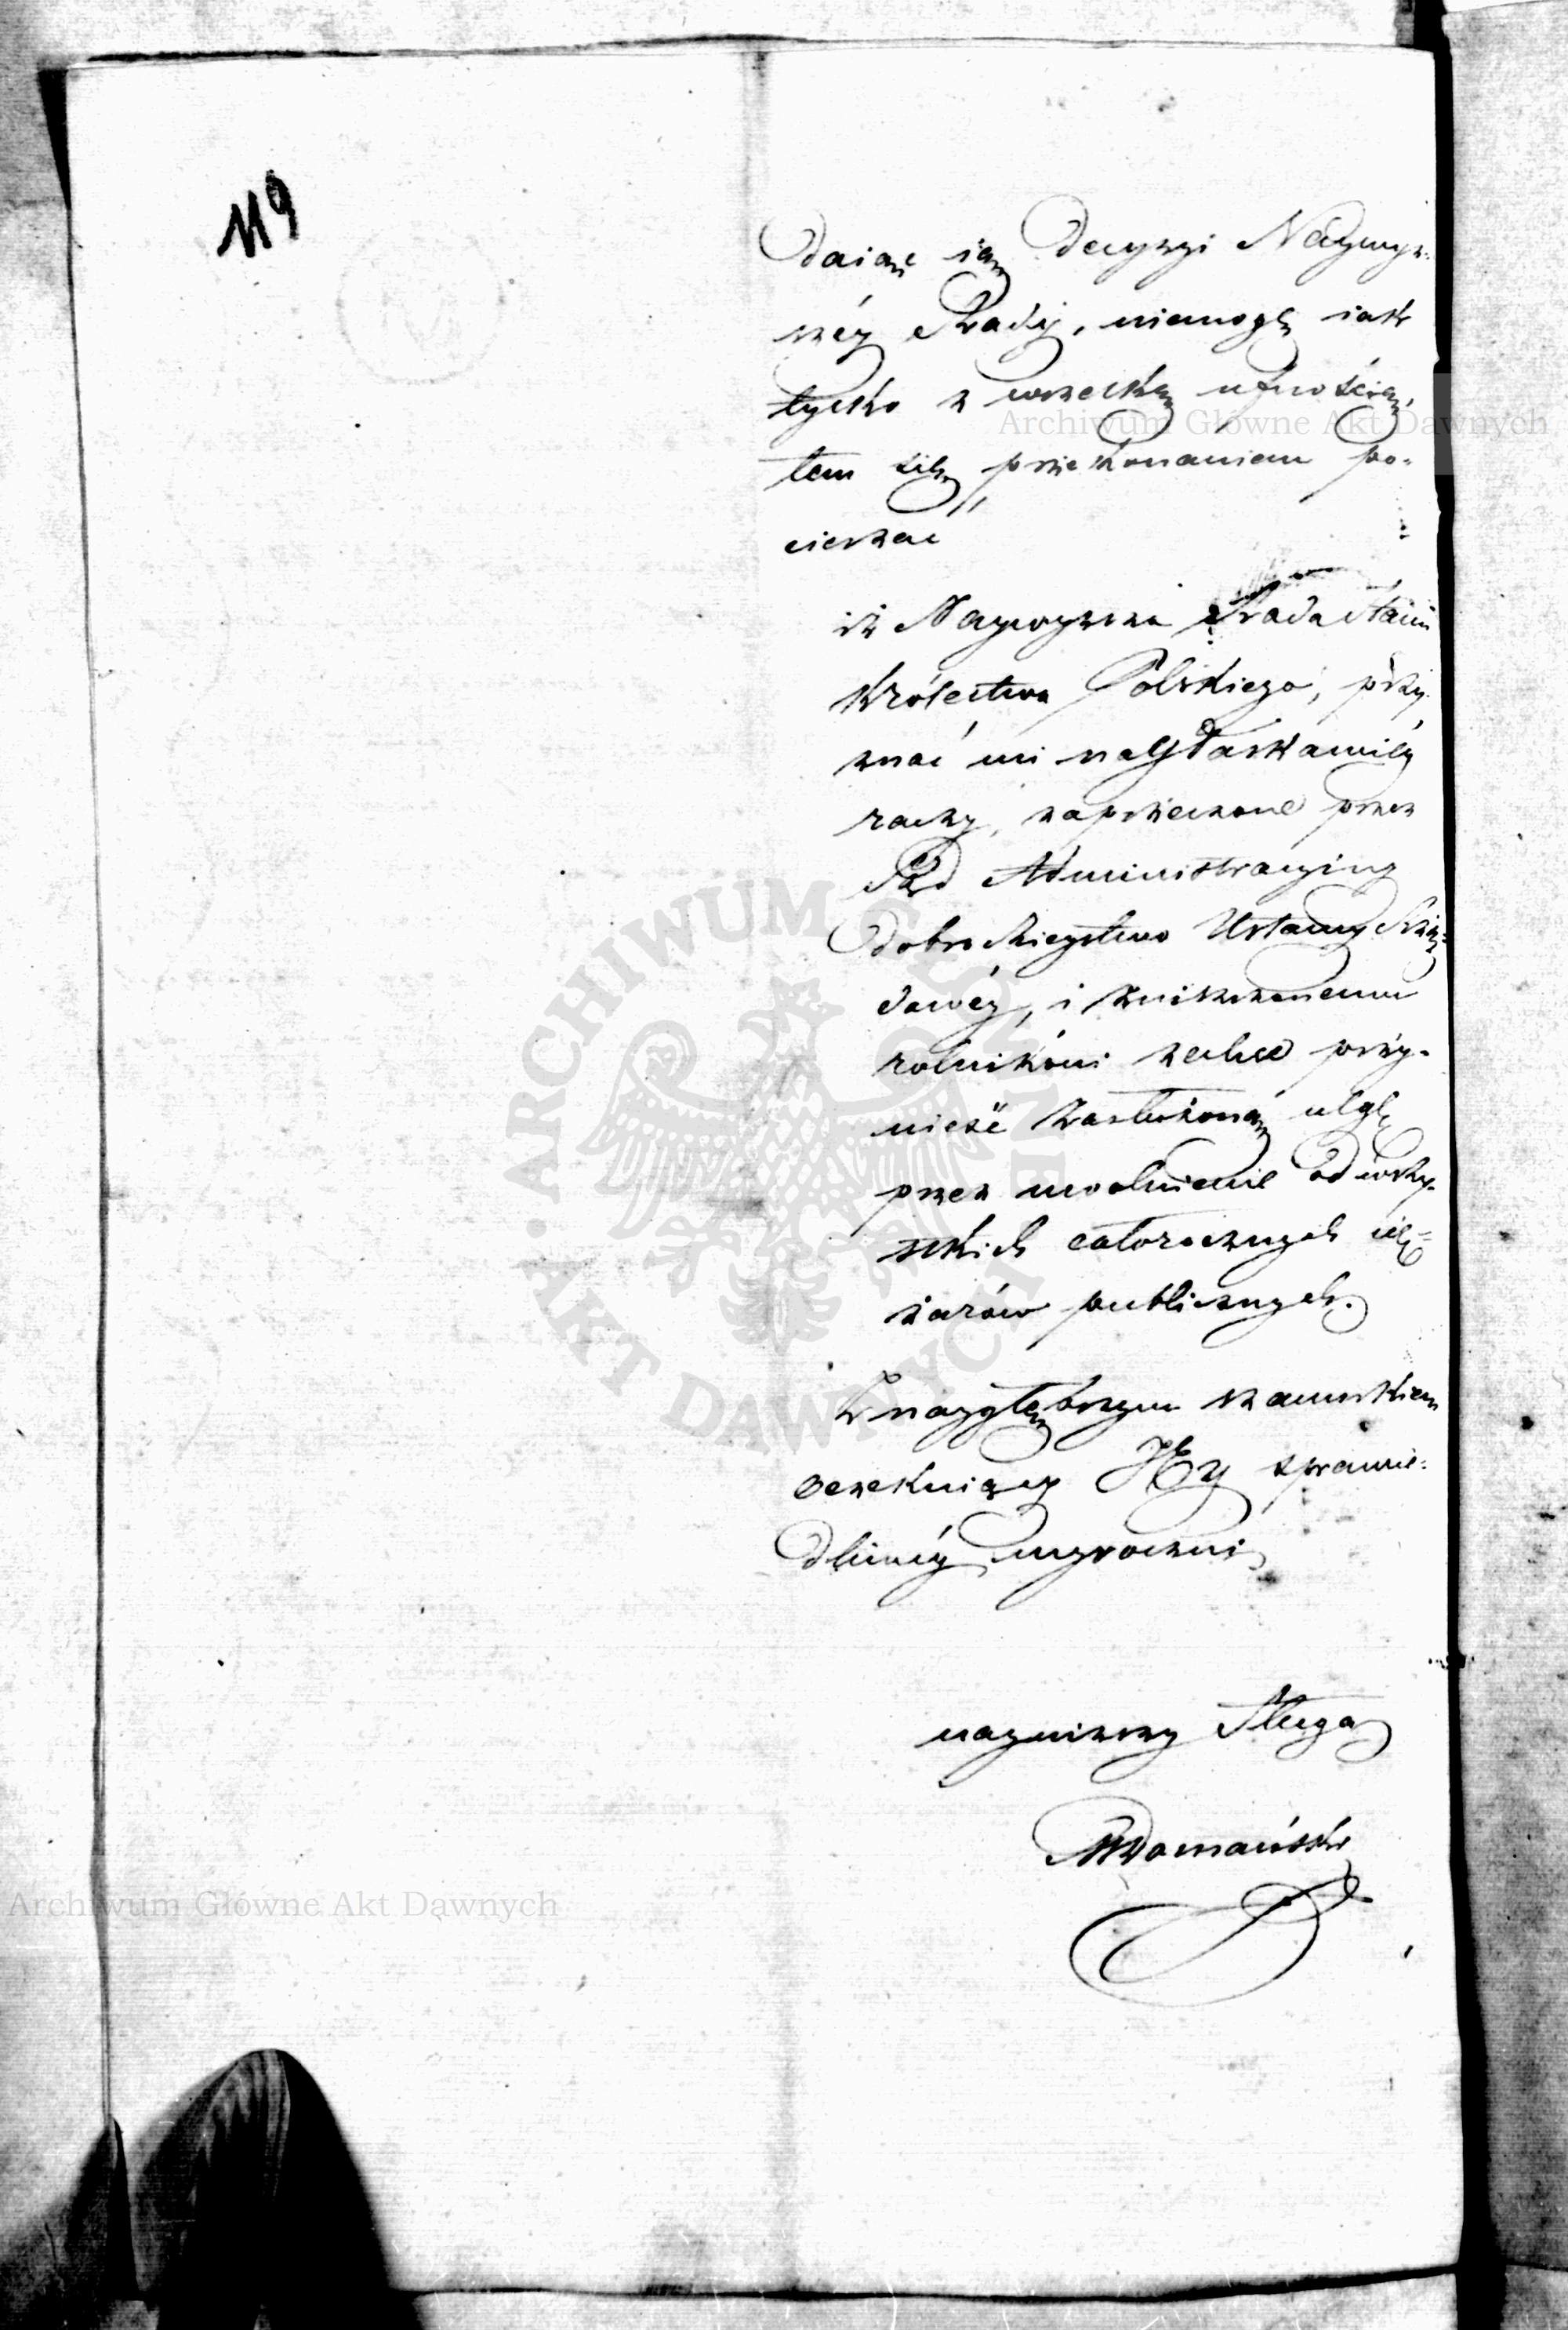 119
Daiąc ią Decyzyi Naywyż-
széy Rady, niemogę iak
tylko z wszelką ufnością,
tem się przekonaniem po-
cieszać
iż Naywyższa Rada Stanu
Królestwa Polskiego, przy-
znać mi nayłaskawiéy
raczy, zaprzeczone przez
Rząd Administracyiny
Dobrodzieystwo Ustawy Rzą-
dowéy, i zniszczonemu
rolnikowi zechce przy-
nieść zasłużoną ulgę
przez uwolnienie od wszy-
stkich całorocznych cię-
żarów publicznych.
Z naygłębszym szacunkiem
oczekuiący Jéy sprawie-
dliwéy wyroczni
nayniższy Sługa
Domański
Archiwum Główne Akt Dawnych
ARCHIWUM GŁÓWNE AKT DAWNYCH
Archiwum Główne Akt Dawnych